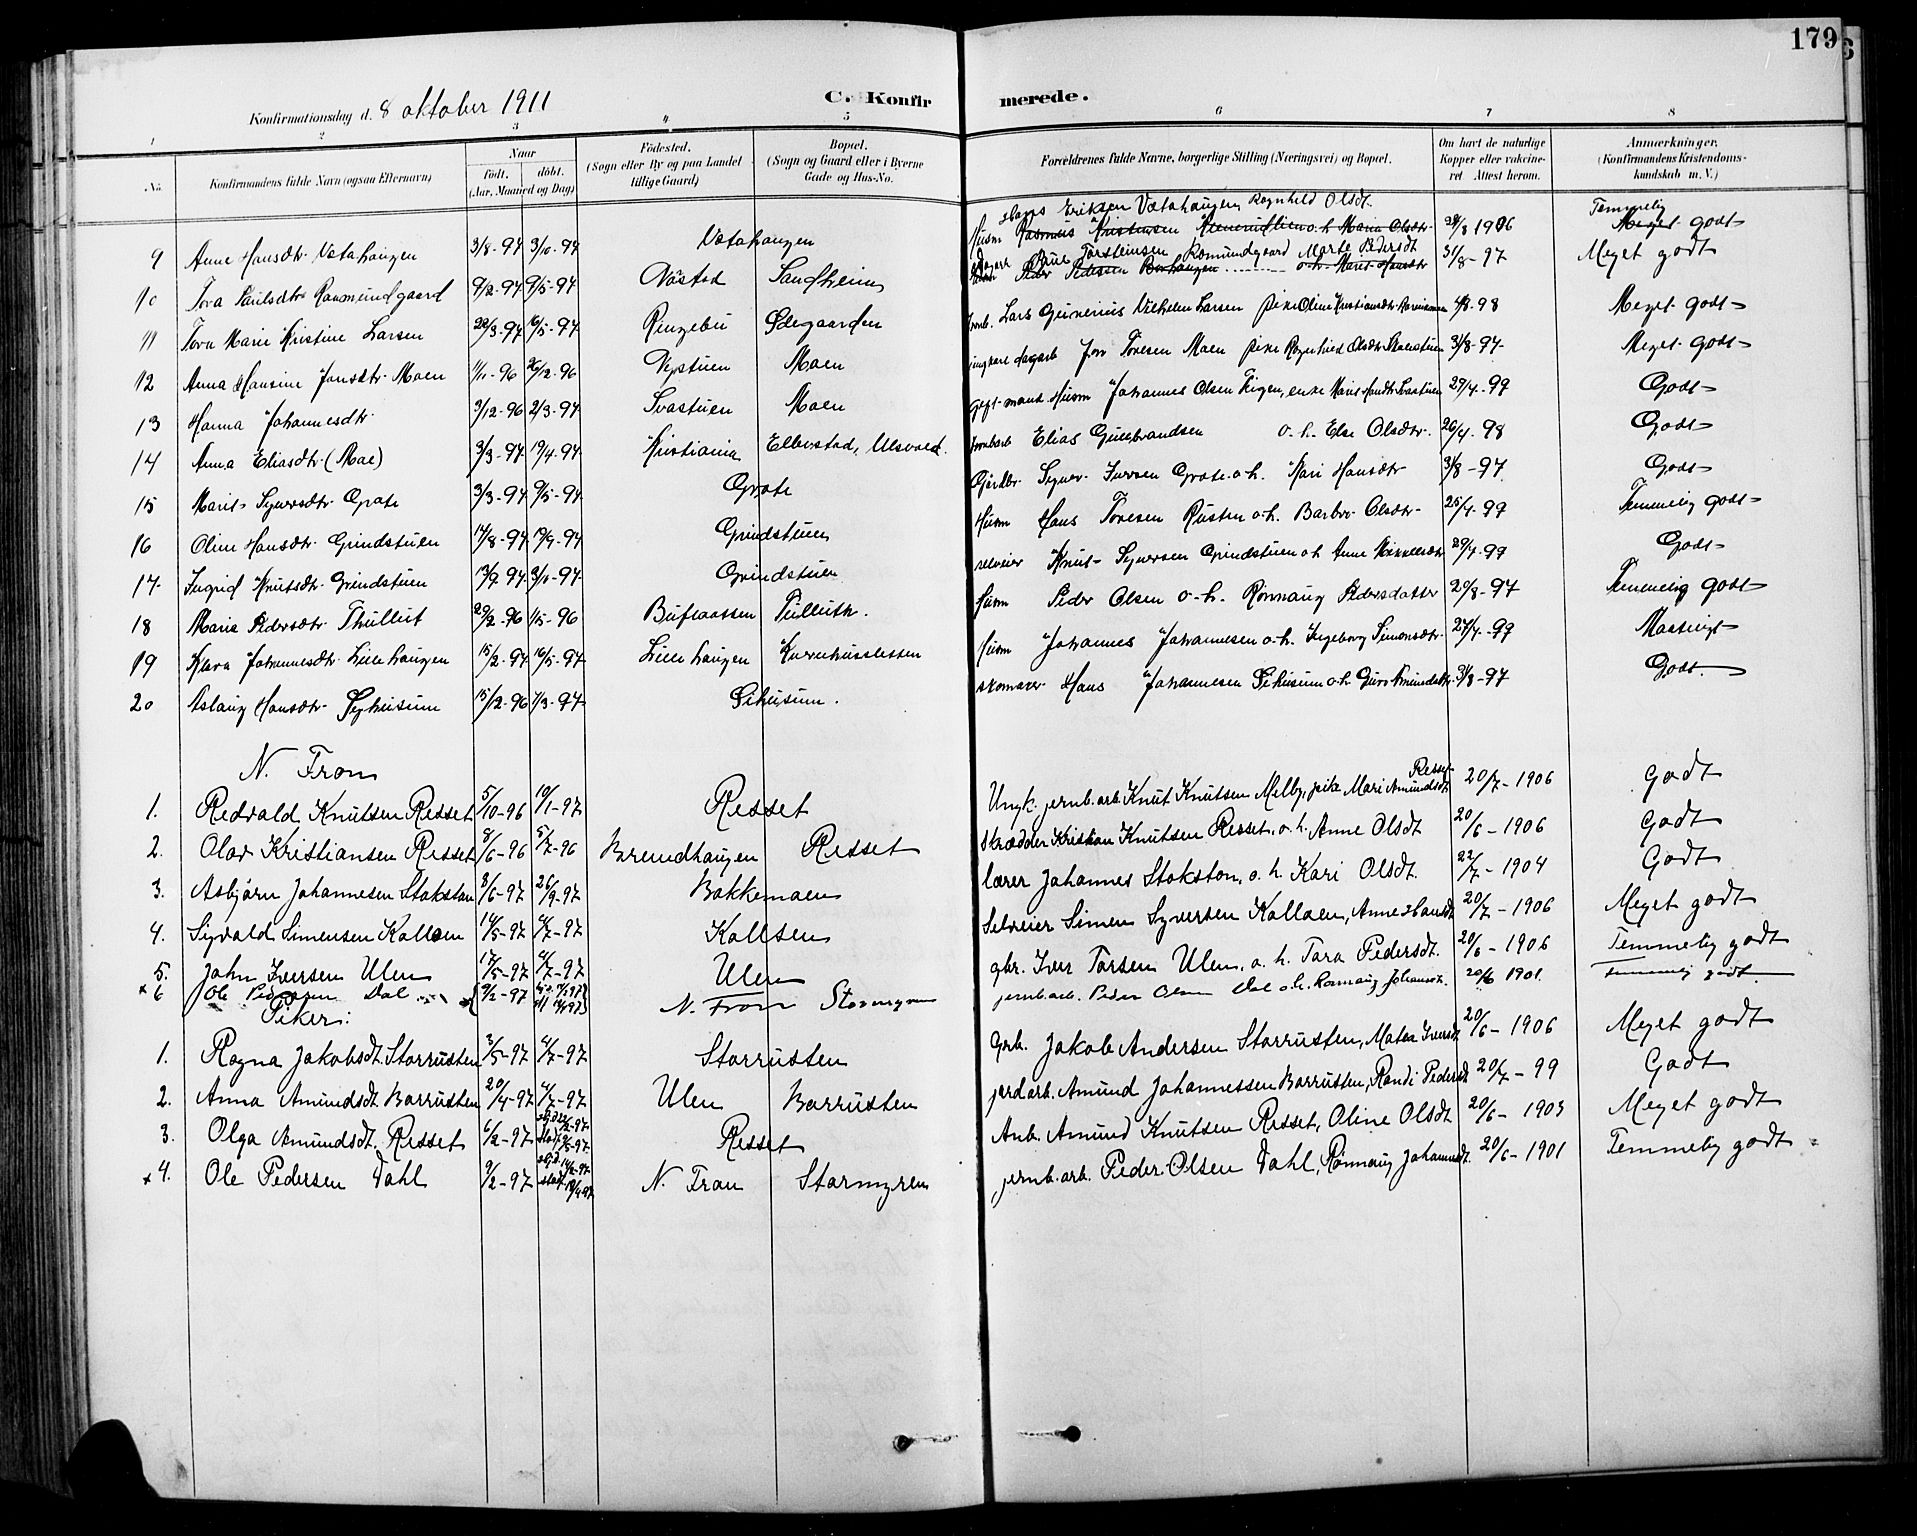 179
Konfirmationsdag d. 8 oktober 1911
C. Konfirmerede.
1 2 3 4 5 6 7 8
No. Konfirmandens fulde Navn (ogsaa Efternavn) Naar født. døbt. (Aar, Maaned og Dag) Fødested. (Sogn eller By og paa Landet tillige Gaard) Bopæl. (Sogn og Gaard eller i Byerne Gade og Hus-No. Forældrenes fulde Navne, borgerlige Stilling (Næringsvei) og Bopæl. Om havt de naturlige Kopper eller vaccineret. Attest herom. Anmærkninger. (Konfirmandens Kristendomskundskab m. V.)
Hans Eriksen Vetahaugen Ragnhild Olsdt. Temmelig
9 Anne Hansdtr. Vetahaugen 3/8-97 3/10-97 Vetahaugen Husm 1906 Meget godt
10 Tora Paulsdtr. Romundgaard 9/2-97 9/5-97 Nåstad Sandheim Torsteinsen Romundgaard Marte Pedersdt 31/8-97 Meget godt
11 Tora Marie Kristine Larsen 22/3-97 16/5-97 Ringebu Ødegaarden Lars Vilhelm Larsen pike Oline Kristiansdtr. 4/8-98 Meget godt
12 Anna Hansine Jonsdtr. Moen 1/11-96 26/12-96 Nystuen Moen ungkare dagarb Jon Toresen Moen pike Ragnhild Olsdtr. 3/8-97 Meget godt
13 Hanna Johannesdtr 3/12-96 2/3-97 Svastuen Moen gift mand Husm Johannes Olsen Teigen, enke Marit Hansdtr Svastuen 27/4-99 Godt
14 Anna Eliasdtr. (Moe) 3/3-97 19/4-97 Kristiania Elberstad, Ulsvold. Elias Gulbrandsen o. h. Else Olsdtr. 26/4-98 Godt
15 Marit Syversdtr Grote 3/3-97 9/5-97 Grote Gårdbr. Syver Iversen Grote o. h. Mari Hansdtr 3/8-97 Godt
16 Oline Hansdtr. Grindstuen 17/8-97 19/9-97 Grindstuen Husm Hans Toresen Rusten o. h. Barbro Olsdtr. 25/4-99 Temmelig godt
17 Ingrid Knutsdtr. Grindstuen 13/9-97 3/11-97 Grindstuen selveier Knut Syversen Grindstuen o. h Anne Mikkelsdtr 29/4-99 Godt
18 Marie Pedersdtr. Thullut 29/2-96 1/5-96 Buflaatten Tullut. Husm Peder Olsen o. h. Rønnaug Pedersdatter 20/8-97 Temmelig godt
19 Klara Johannesdtr. Lillehaugen 15/2-97 16/5-97 Lillehaugen Kvernhussletten Husm Johannes Johannesen o. h. Ingeborg Simensdtr. 27/4-99 Maatelig
20 Aslaug Hansdtr. Syhusum 15/12-96 7/3-97 Sihusum. skomaker Hans Johannesen Sihusum o. h. Guro Amundsdtr. 31/8-97 Godt.
N. Fron
1. Redvald Knutsen Resset 5/10-96 10/1-97 Resset Ungk. jernb. arb. Knut Knutsen Melby, pike Mari Amundsdt Resset 20/7-1906 Godt
2. Olav Kristiansen Resset 8/6-96 5/7-96 Brendhaugen Resset Skrædder Kristian Knutsen Resset, o. h. Anne Olsdt 20/6-1906 Godt
3. Asbjørn Johannesen Stokston 8/6-97 26/9-97 Bakkemoen lærer Johannes Stokston, o. h. Kari Olsdt. 22/7-1904 Godt
4. Sigvald Simensen Kolloen 14/5-97 4/7-97 Kolloen Selveier Simen Syversen Kolloen, Anne Hansdt 20/7-1906 Meget godt
5. John Iversen Ulen 17/5-97 4/7-97 Ulen gbr. Iver Torsen Ulen, o. h. Tora Pedersdt. 20/6-1906 Temmelig godt
x 6 Ole Pedersen Dal 9/2-97 N. Fron Stormyren jernb. arb. Peder Olsen Dal o. h. Rønnaug Johannsdt. 20/6 1901. temmelig godt
Piker:
1. Ragna Jakobsdt. Storrusten 3/5-97 4/7-97 Storrusten Gbr. Jakob Andersen Storrusten, Matea Iversdt 20/6-1906 Meget godt
2. Anna Amundsdt Borrusten 20/4-97 4/7-97 Ulen Borrusten jordarb. Amund Johannessen Borrusten, Randi Pedersdt 20/7-99 Godt
3. Olga Amundsdt. Resset 6/2-97 Resset Arb. Amund Knutsen Resset, Oline Olsdt 20/6-1903 Meget godt
x 4. Ole Pedersen Dahl 9/2-97 N. Fron Stormyren jernb. arb. Peder Olsen Dahl, Rønnaug Johannsdt. 20/6-1901 Temmelig godt